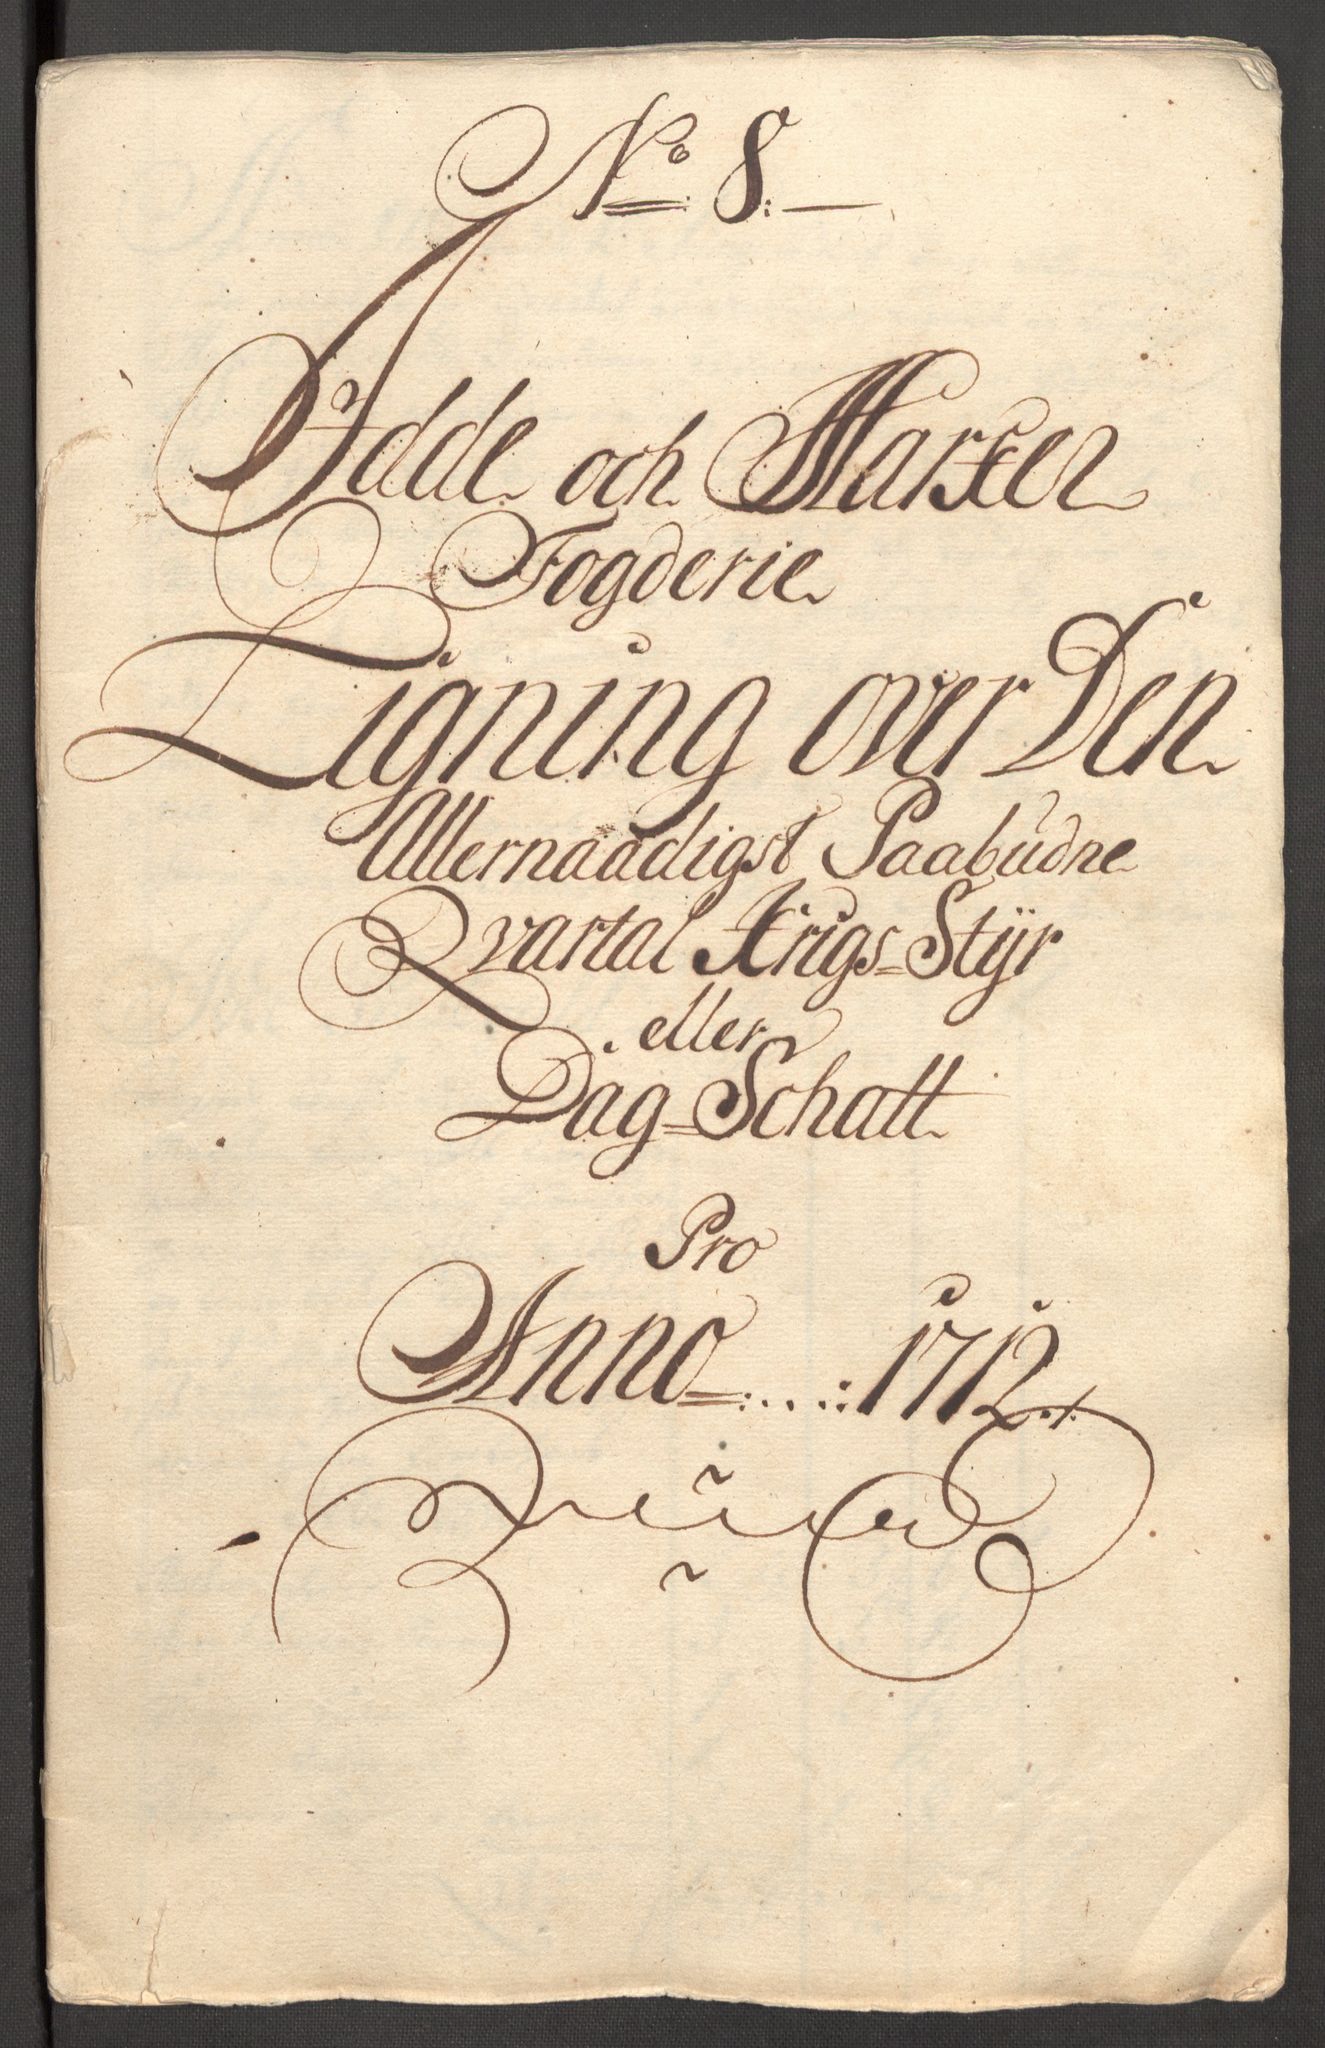 No 8.
Idde och Marker
Fogderie
Ligning over Den
Allernaadigst Paabudne
Qvartal Krigs=Styr
eller
Dag=Schatt
Pro
Anno 1712